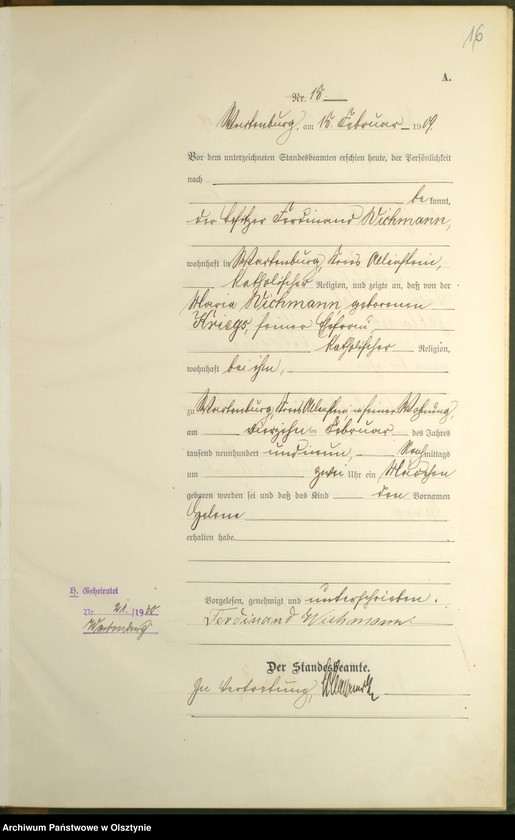 16
A.
Nr. 15.
Wartenburg, am 15. Februar 1909.
Vor dem unterzeichneten Standesbeamten erschien heute, der Persönlichkeit
nach
be kannt,
der Besitzer Ferdinand Wichmann,
wohnhaft in Wartenburg, Kreis Allenstein,
katholischer Religion, und zeigte an, daß von der
Maria Wichmann, geborenen
Kriegs, seiner Ehefrau,
katholischer Religion,
wohnhaft bei ihm,
zu Wartenburg, Kreis Allenstein, in seiner Wohnung,
am vierzehnten Februar des Jahres
tausend neunhundert und neun, Nachmittags
um zwei Uhr ein Mädchen
geboren worden sei und daß das Kind den Vornamen
Helene
erhalten habe.
H. Geheiratet
Nr. 21. /1930.
Wartenburg
Vorgelesen, genehmigt und unterschrieben.
Ferdinand Wichmann.
Der Standesbeamte.
In Vertretung,
Archiwum Państwowe w Olsztynie